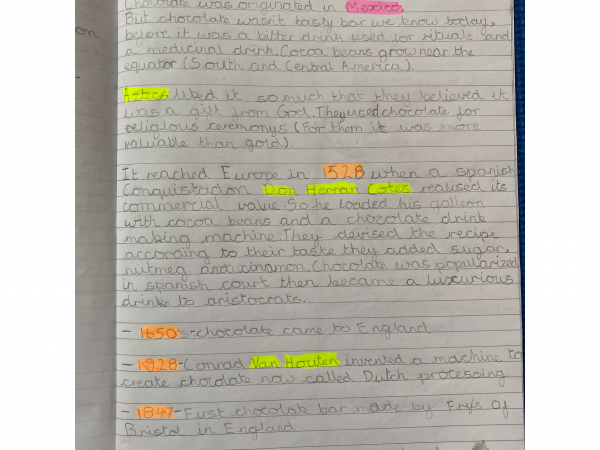 on
Chocolate was originated in Mexico.
But chocolate wasn't tasty bar we know today,
before it was a bitter drink used for rituals and
a medicinal drink. Cocoa beans grow near the
equator (South and Central America).
Aztecs liked it so much that they believed it
was a gift from God. They used chocolate for
religious ceremonys (For them it was more
valuable than gold).
It reached Europe in 1528 when a spanish
Conquistador Don Hernan Cotes realised its
commercial value. So he loaded his galleon
with cocoa beans and a chocolate drink
making machine. They devised the recipe
according to their taste they added sugar,
nutmeg and cinamon. Chocolate was popularized
in spanish court then became a luxurious
drink to aristocrats.
- 1650's-chocolate came to England
- 1828-Conrad Van Houten invented a machine to
create chocolate now called Dutch processing
- 1847-First chocolate bar made by Frys Of
Bristol in England